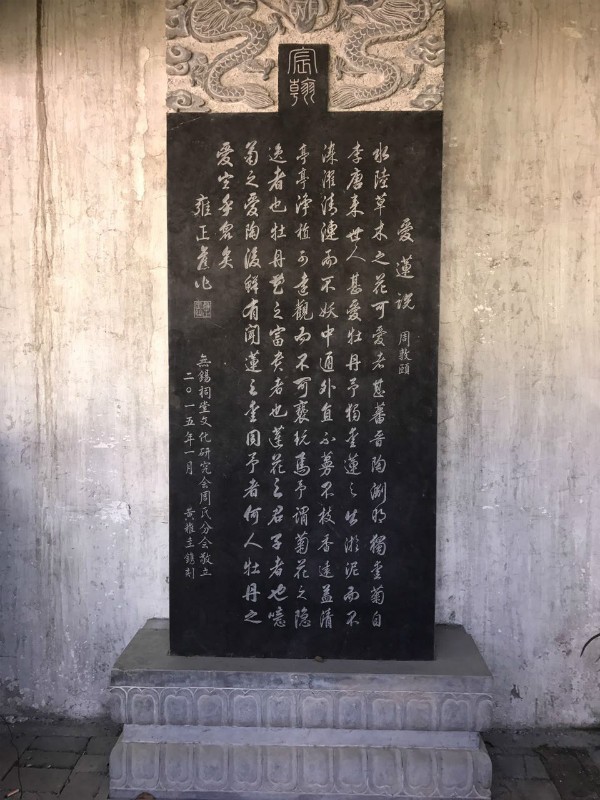 宸翰
愛蓮说 周敦頤
水陸草木之花可爱者甚蕃晋陶渊明獨爱菊自
李唐来世人甚愛牡丹予獨爱蓮之出淤泥而不
染濯清漣而不妖中通外直不蔓不枝香遠益清
亭亭淨植可遠觀而不可褻玩焉予謂菊花之隐
逸者也牡丹花之富贵者也蓮花之君子者也噫
菊之爱陶後鲜有聞蓮之爱同予者何人牡丹之
爱宜乎众矣
雍正
無錫祠堂文化研究会周氏分会敬立
二〇一五年一月 黄稚圭鐫刻